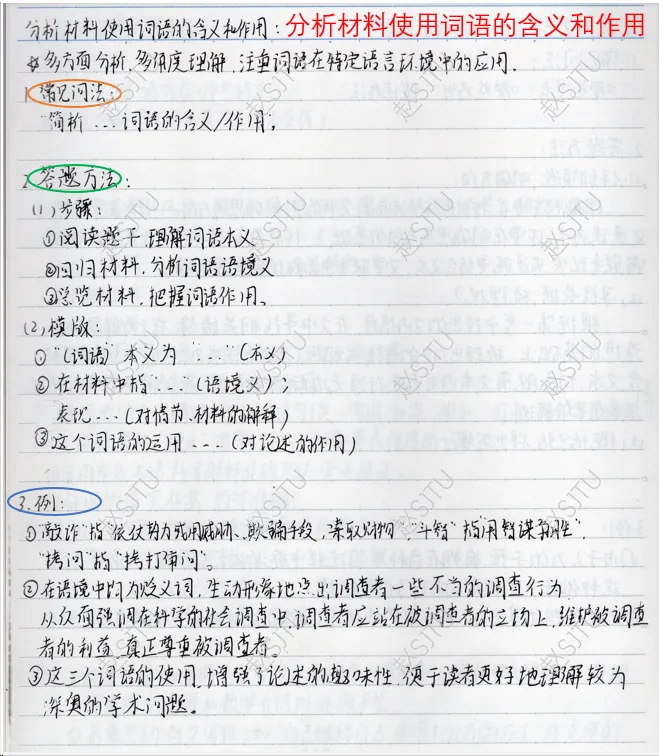 分析材料使用词语的含义和作用: 分析材料使用词语的含义和作用
* 多方面分析,多角度理解,注重词语在特定语言环境中的应用.
1. 常见问法:
"简析...词语的含义/作用";
2. 答题方法:
(1)步骤:
①阅读题干,理解词语本义
②回归材料,分析词语语境义
③总览材料,把握词语作用。
(2)模版:
①"(词语)本义为"...."(本义)
②在材料中指"...."(语境义);
表现...(对情节、材料的解释)
③这个词语的运用....(对论述的作用)
3.例:
①"敲诈"指"依仗势力或用威胁、欺骗手段,索取财物","斗智"指"用智谋争胜",
"拷问"指"拷打审问"。
②在语境中均为贬义词,生动形象地点出调查者一些不当的调查行为
从反面强调在科学的社会调查中,调查者应站在被调查者的立场上,维护被调查
者的利益,真正尊重被调查者。
③这三个词语的使用,增强了论述的趣味性,便于读者更好地理解较为
深奥的学术问题。
赵XSJTU
赵XSJTU
赵XSJTU
赵XSJTU
赵XSJTU
赵XSJTU
赵XSJTU
赵XSJTU
赵XSJTU
赵XSJTU
赵XSJTU
赵XSJTU